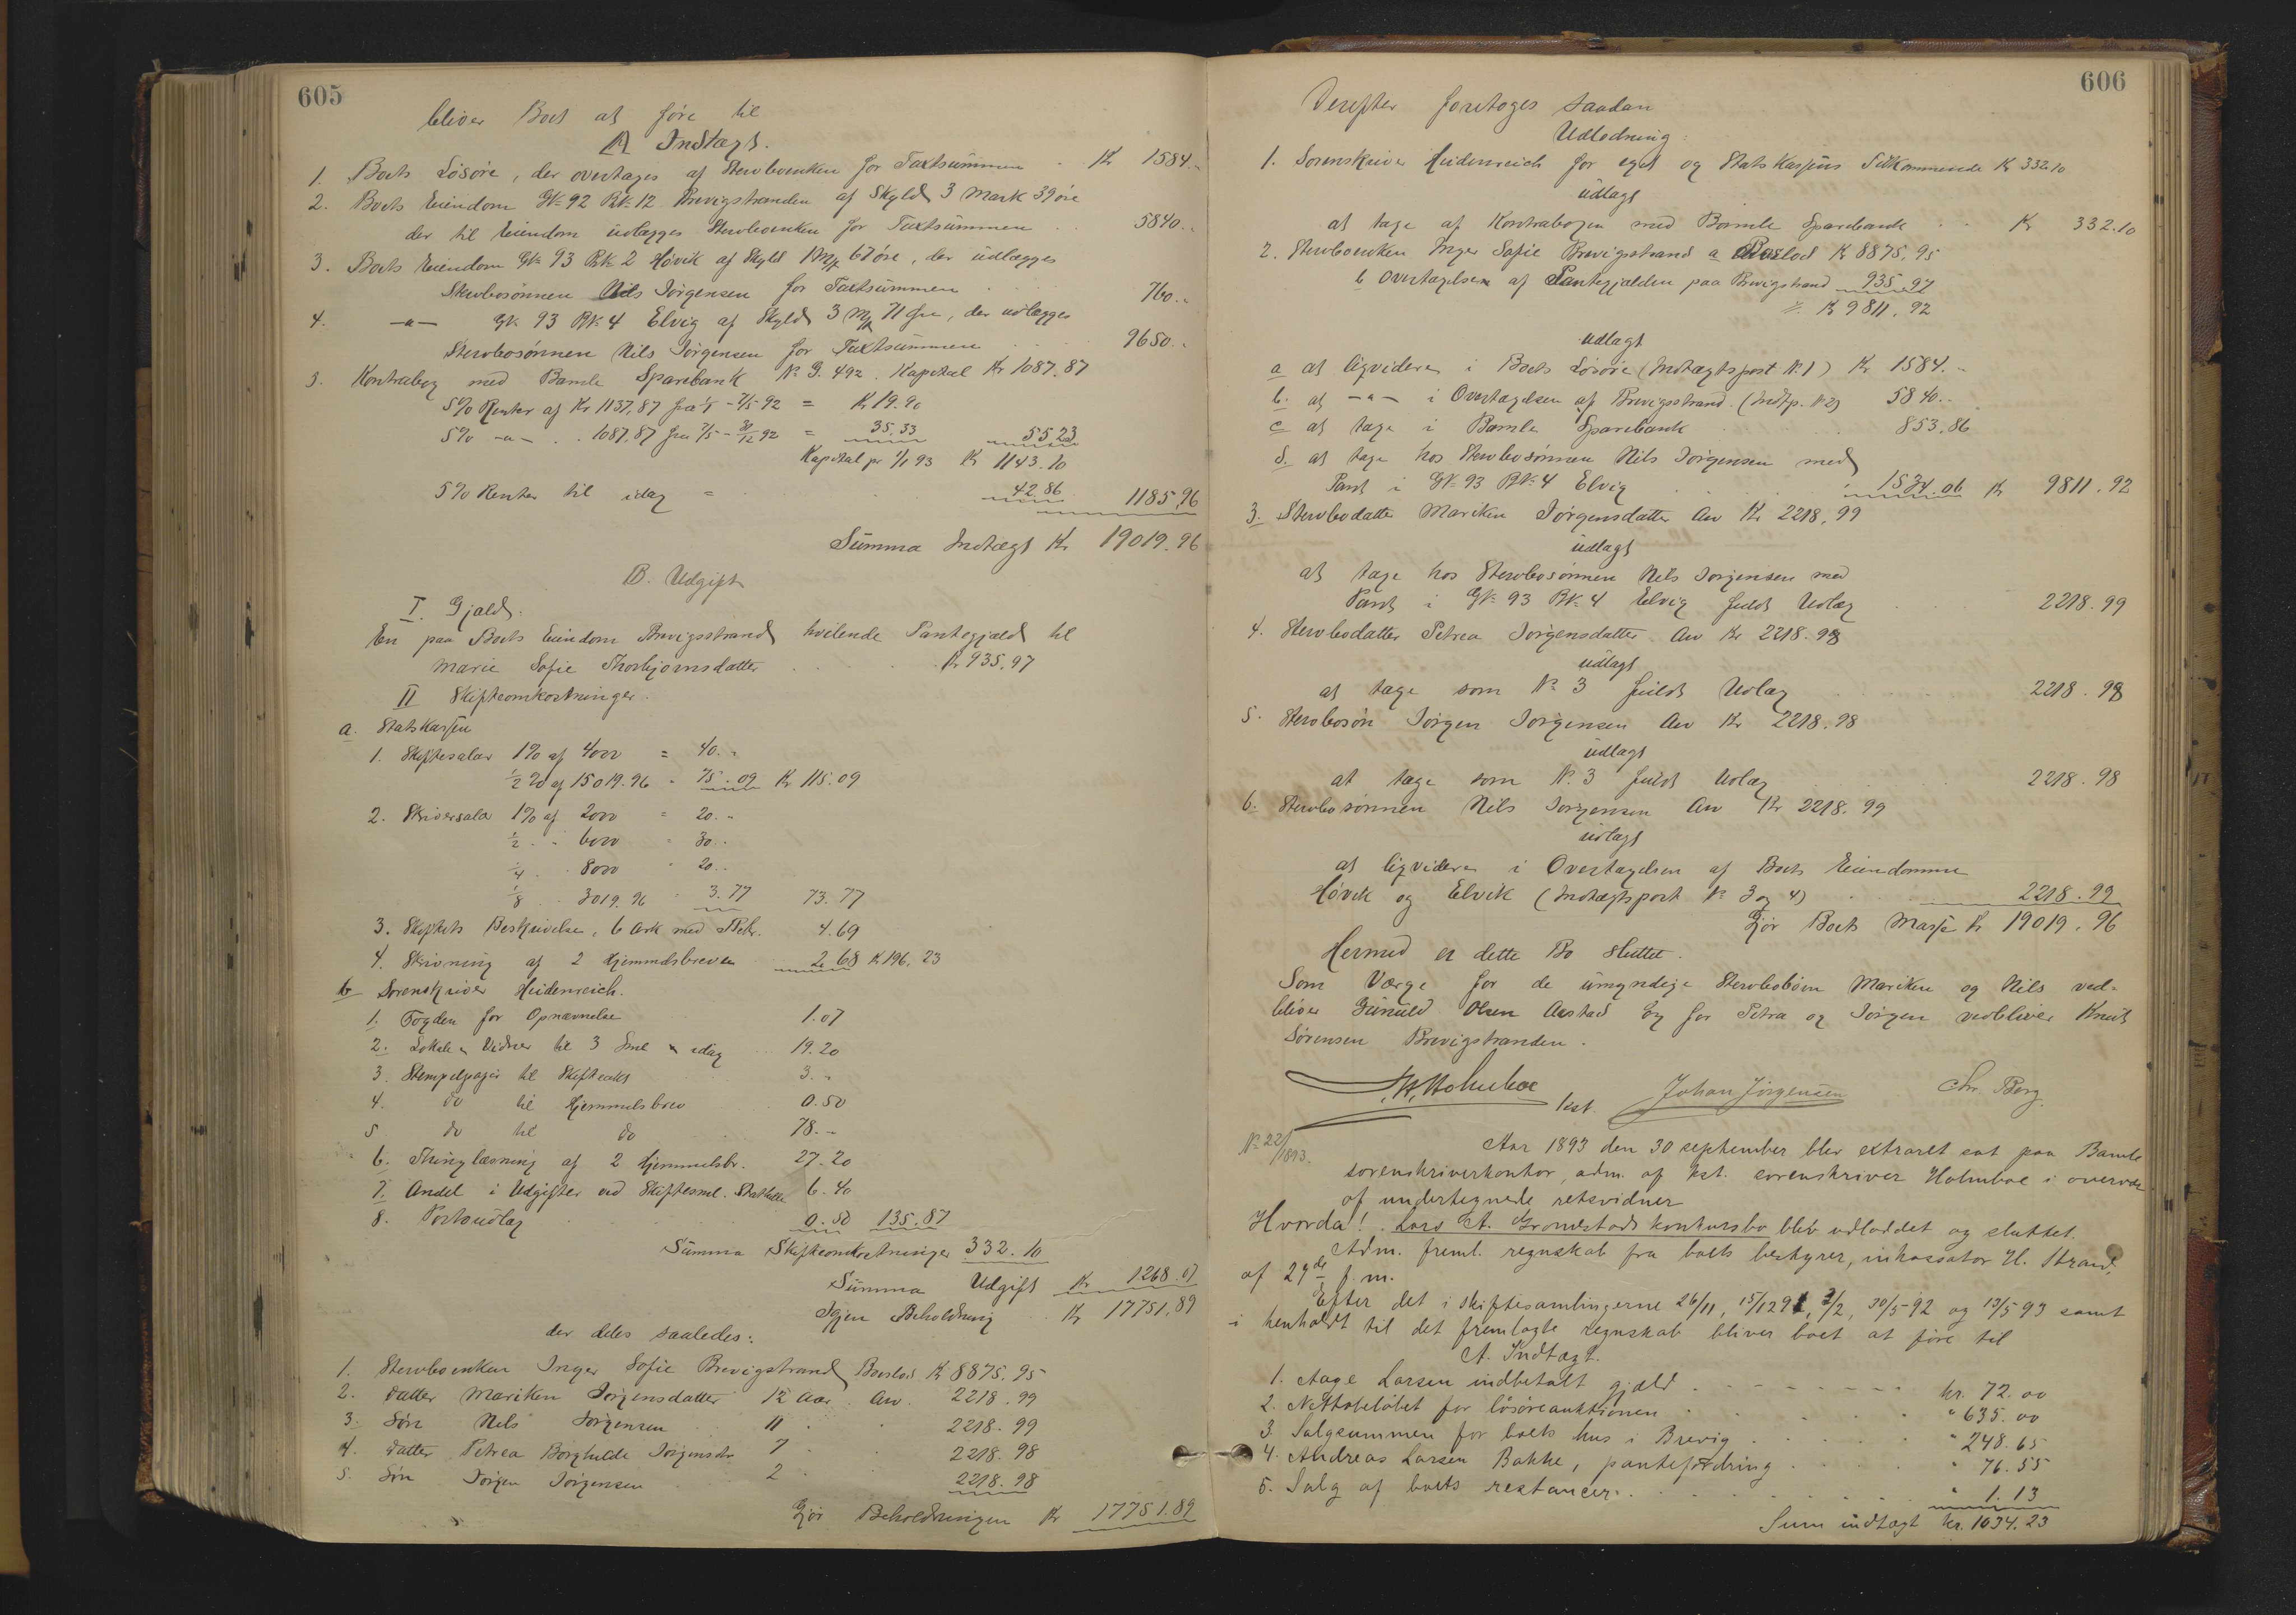 605
bliver Boet at føre til
A Indtægt.
1. Boets Løsøre, der overtages af Stervboenken for Taxtsummen . Kr 1584.-
2. Boets Eiendom Gk. 92 Bk. 12 Brevigstranden af Skyld 3 Mark 39 øre
der til Eiendom udlægges Stervboenken for Taxtsummen . . 5840..
3. Boets Eiendom Gk. 93 Bk. 2 Høvik af Skyld 1 Mk 67 øre, der udlægges
Stervbosønnen Nils Jørgensen for Taxtsummen . . . 760..
4. -"- Gk. 93 Bk. 4 Elvig af Skyld 3 Mk 71 øre, der udlægges
Stervbosønnen Nils Jørgensen for Taxtsummen . . . 9650..
5. Kontrabog med Bamle Sparebank No G. 492. Kapital Kr 1087.87
5% Renter af Kr 1137.87 fra 1/1 - 7/5 92 = Kr 19.90
5% -"- . . 1087.87 fra 7/5 - 31/12 92 = 35.33 55.23
Kapital pr 1/1 93 Kr 1143.10
5% Renter til idag = 42.86 1185.96
Summa Indtægt Kr 19019.96
B. Udgift
I. Gjæld.
En paa Boets Eiendom Brevigsstrand hvilende Pantegjæld til
Marie Sofie Thorbjørnsdatter . . . . Kr 935.97
II Skifteomkostninger.
a. Statskassen
1. Skiftesalær 1% af 4000 = 40.-
1/2 % af 15019.96 - 75.09 Kr 115.09
2. Skriversalær 1% af 2000 = 20.-
1/2 . . 6000 = 30..
1/4 . . 8000 " 20..
1/8 . . 3019.96 " 3.77 73.77
3. Skiftets Beskrivelse, 6 Ark med Beh. 4.69
4. Skrivning af 2 Hjemmelsbreve 2.68 Kr 196.23
b Sorenskriver Heidenreich.
1. Fogden for Opnævnelse 1.07
2. Lokale & Vidner til 3 Sml & idag 19.20
3. Stempelpapir til Skifteakt 3.-
4. do til Hjemmelsbrev 0.50
5 do til do 78.-
6. Thinglæsning af 2 Hjemmelsbr. 27.20
7. Andel i Udgifter ved Skiftesml. Stathelle 6.40
8. Portoudlæg 0.50 135.87
Summa Skifteomkostninger 332.10
Summa Udgift Kr 1268.07
Igjen Beholdning Kr 17751.89
der deles saaledes:
1. Stervboenken Inger Sofie Brevigstrand Boeslod Kr 8875.95
2. Datter Mariken Jørgensdatter 12 Aar . Arv . 2218.99
3. Søn Nils Jørgensen 11 . . 2218.99
4. Datter Petrea Borghilde Jørgensdr 7 . . 2218.98
5. Søn Jørgen Jørgensen 2 . . 2218.98
Gjør Beholdningen Kr 17751.89
606
Derefter foretoges saadan
Udlodning:
1. Sorenskriver Heidenreich for eget og Statskassens Tilkommende Kr 332.10
udlagt
at tage af Kontrabogen med Bamle Sparebank . . . Kr 332.10
2. Stervboenken Inger Sofie Brevigstrand a Boeslod Kr 8875.95
b Overtagelsen af Pantegjælden paa Brevigstrand 935.97
Kr 9811.92
udlagt
a at liqvidere i Boets Løsøre (Indtægtspost No 1) Kr 1584.-
b. at -"- i Overtagelsen af Brevigsstrand. (Indtp. No 2) 5840..
c at tage i Bamle Sparebank . . . 853.86
d. at tage hos Stervbosønnen Nils Jørgensen med
Pant i Gk. 93 Bk. 4 Elvig . . . 1534.06 Kr 9811.92
3. Stervbodatter Mariken Jørgensdatter Arv Kr 2218.99
udlagt
at tage hos Stervbosønnen Nils Jørgensen med
Pant i Gk. 93 Bk. 4 Elvig fuldt Udlæg . . . 2218.99
4. Stervbodatter Petrea Jørgensdatter Arv Kr 2218.98
udlagt
at tage som No 3 fuldt Udlæg . . . 2218.98
5. Stervbosøn Jørgen Jørgensen Arv Kr 2218.98
udlagt
at tage som No 3 fuldt Udlæg . . . 2218.98
6. Stervbosønnen Nils Jørgensen Arv Kr 2218.99
udlagt
at liqvidere i Overtagelsen af Boets Eiendomme
Høvik og Elvik (Indtægtspost No 3 og 4) . . 2218.99
Gjør Boets Masse Kr 19019.96
Hermed er dette Bo sluttet.
Som Værge for de umyndige Stervbobørn Mariken og Nils ved-
bliver Gunuld Olsen Aastad og for Petra og Jørgen vedbliver Knut
Sørensen Brevigstranden.
Holmboe
kst. Johan Jörgensen Chr. Berg.
No 22/1893. Aar 1893 den 30 september blev extraret sat paa Bamle
sorenskriverkontor, adm. af kst. sorenskriver Holmboe i overvær
af undertegnede retsvidner
Hvorda! Lars A. Gromstads konkursbo blev udloddet og sluttet.
Adm. freml. regnskab fra boets bestyrer, inkassator H. Strand,
af 24de f. m.
Efter det i skiftesamlingerne 26/11, 15/12 91, 2/2, 30/5-92 og 13/5 93 samt
i henhold til det fremlagte regnskab bliver boet at føre til
A. Indtægt.
1. Aage Larsen indbetalt gjæld . . . . . kr. 72.00
2. Nettobeløbet for løsøreauktionen . . . . " 635.00
3. Salgsummen for boets hus i Brevig . . . . " 248.65
4. Andreas Larsen Bakke, pantefordring . . . . " 76.55
5. Salg af boets restancer . . . . . " 1.13
Sum indtægt kr. 1034.23